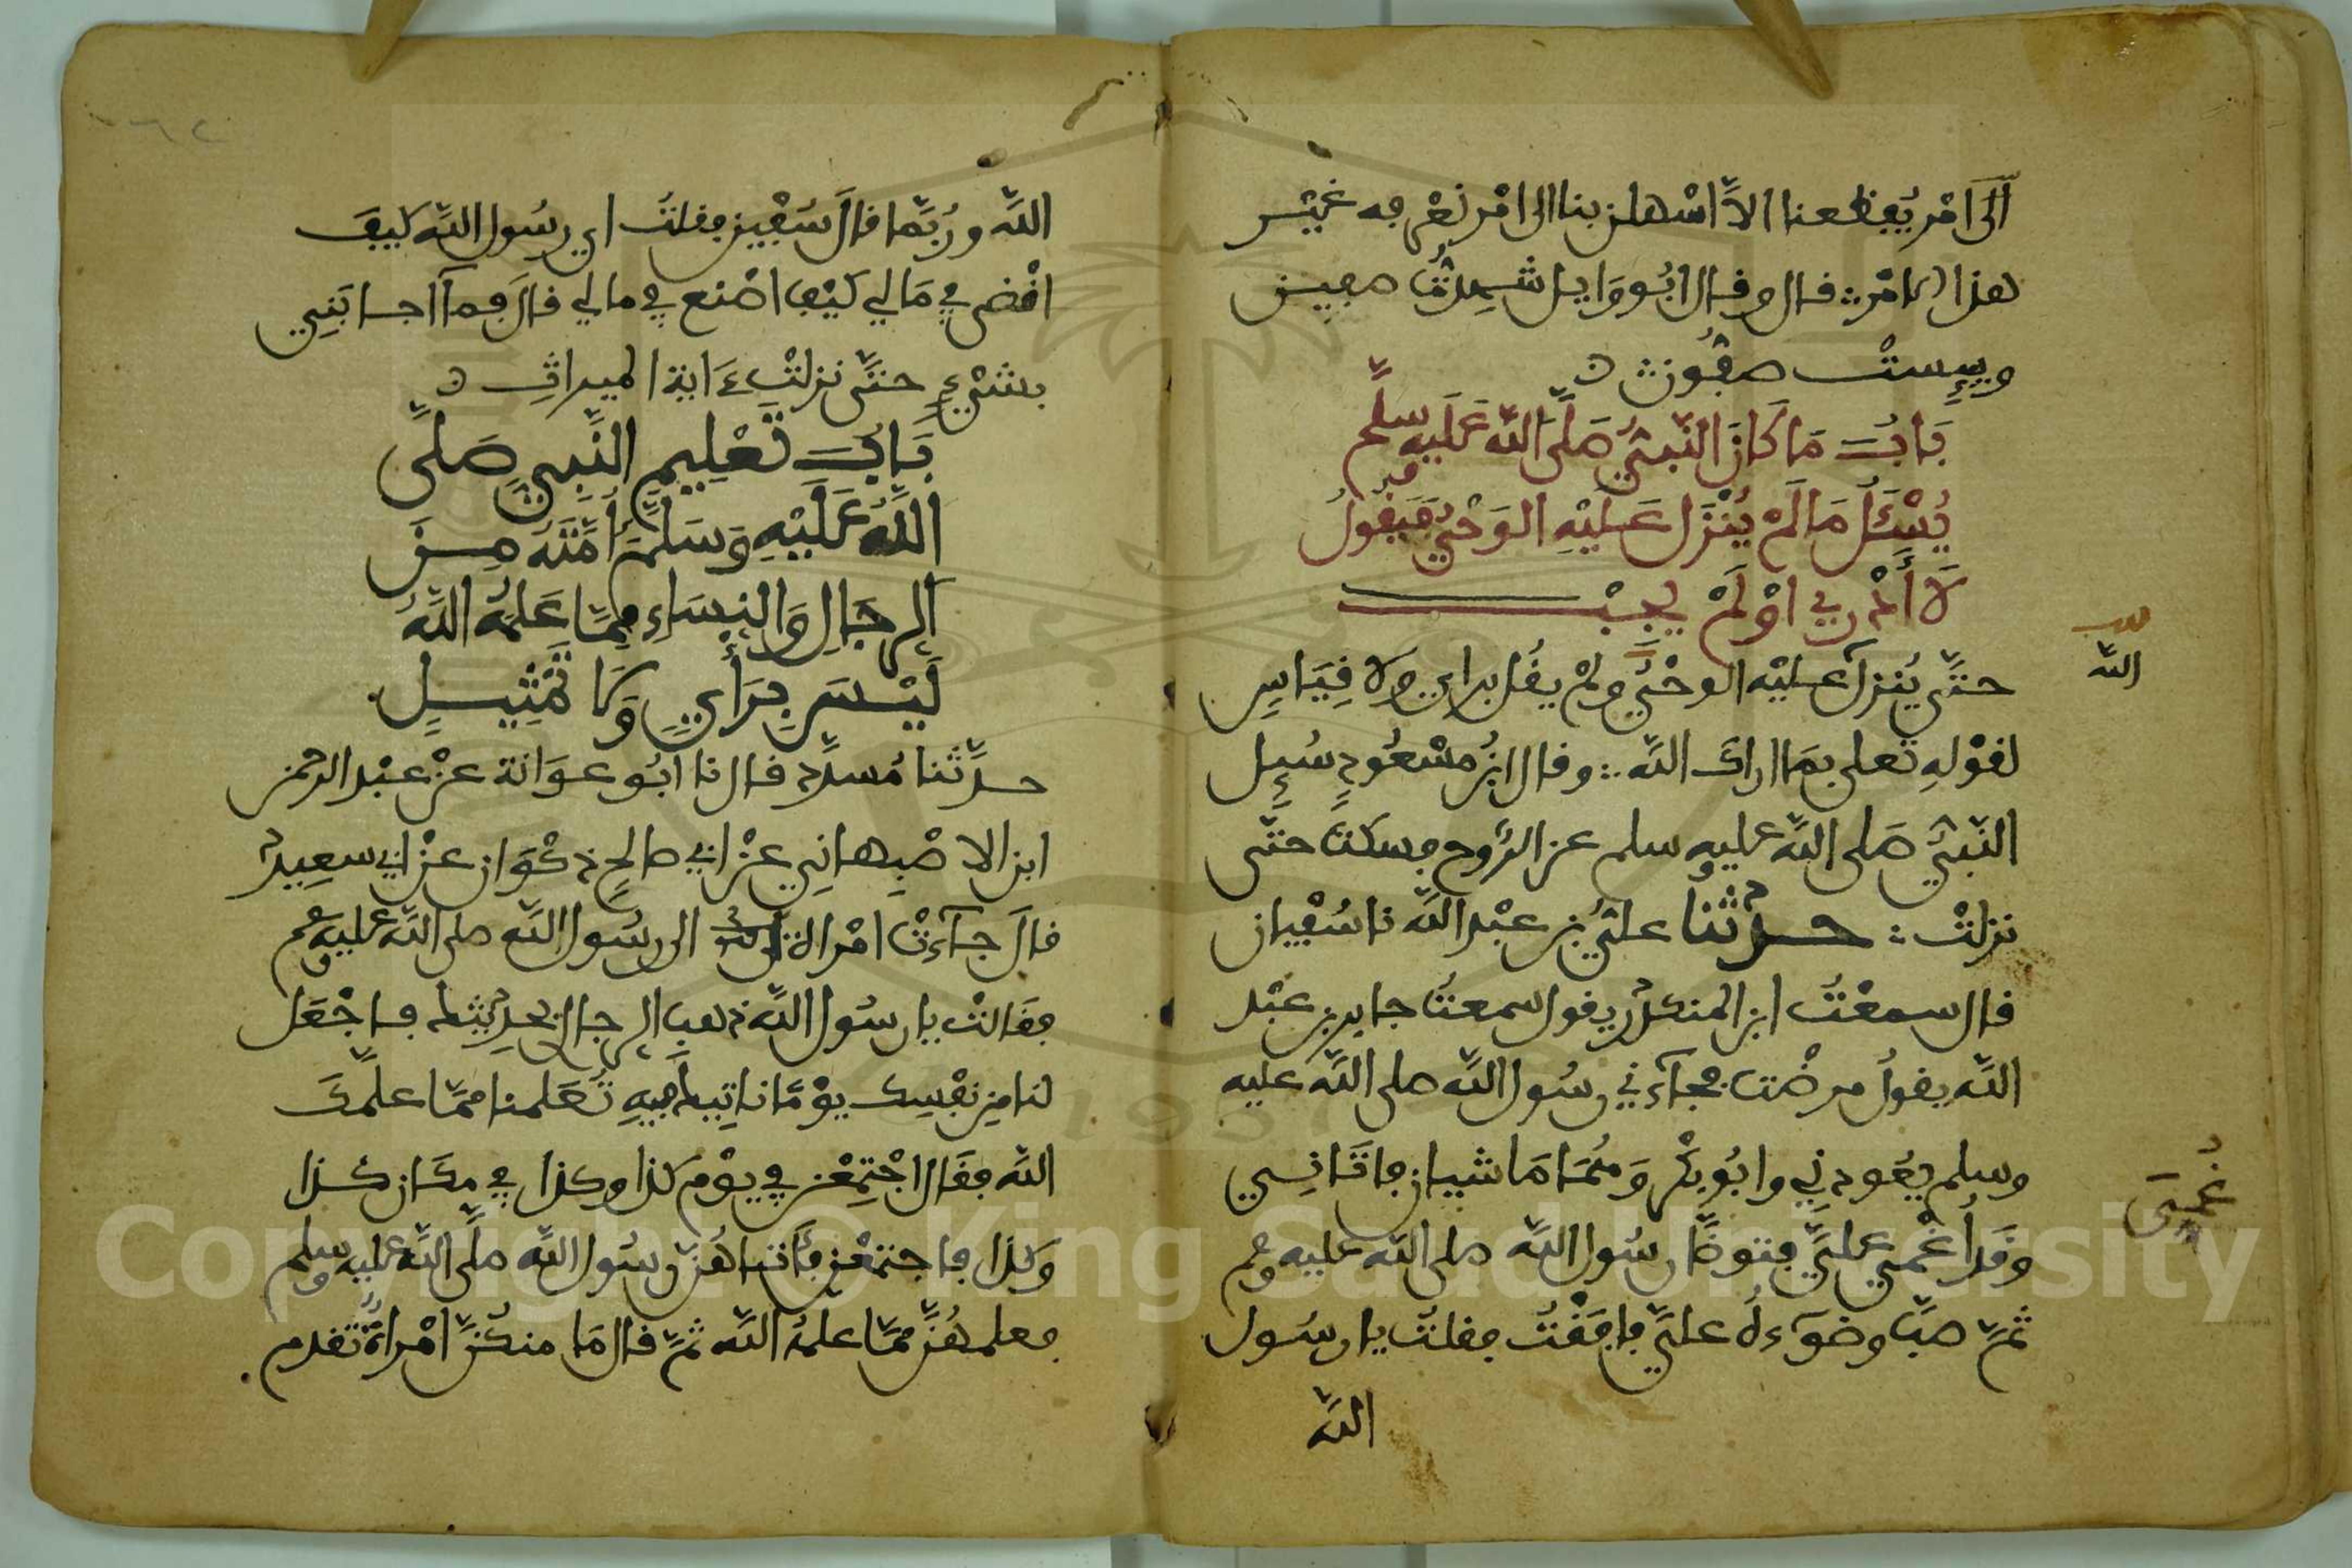 الى امر يفظعنا الا اسهلن بنا الى امر نعرفه غير
هذا الامر قال وقال ابو وايل شهدت صفين
وبيست صفون
بَابُ مَا كَانَ النَّبِيُّ صَلَّى اللَّه عَلَيْهِ وسلم
يُسْئَلُ مَا لَمْ يُنْزَل عَلَيْهِ الوَحْيُ فَيَقُولُ
لَا أَدْرِي اوْ لَمْ يجبْ
حتَّى يُنزل عليْه الوحْيُ ولمْ يقُل براي ولا قِيَاسٍ
لقوْلهِ تعلى بمَا اراك اللَّه وقال ابنُ مسْعُودٍ سُيِل
النَّبيُّ صَلى اللَّه عليه وسلم عن الرُّوح فسكتَ حتَّى
نزلتْ حدثنا عليُّ بن عبْد اللَّه نا سُفْيان
قال سمعْتُ ابن المنكدر يقول سمعتُ جابر بن عبْد
اللَّه يقولُ مرضْتُ فجآءني رسُول اللَّه صلى اللَّه عليه
وسلم يعُودني وابُو بكْر وَهُمَا مَاشيان فاتَانِي
وقد أُغْمي عليَّ فتوضَّا رسُول اللَّه صلى اللَّه عليه وسلم
ثمَّ صبَّ وضوٓءهُ عليَّ فافَقْتُ فقلتُ يا رسُول
اللَّه
اللَّه
غُمِيَ
اللَّه ورُبَّما قالَ سُفْيين فقلتُ اي رسُول اللَّه كيفَ
اقْضي في مَالي كيْف اصْنع في مالي قالَ فمآ اجابَنِي
بشيْءٍ حتَّى نزلتْ ءَاية الميراث
بَابُ تَعْلِيمِ النَّبِيِّ صَلَّى
اللَّهُ عَلَيْهِ وَسَلَّمَ أُمَّتَهُ مِنَ
الرِّجَالِ وَالنِّسَاءِ مِمَّا عَلَّمَهُ اللَّهُ
لَيْسَ بِرَأْيٍ وَلَا تَمْثِيلٍ
حدَّثنا مُسدَّد قال نا ابُو عوَانة عنْ عبْد الرحمن
ابن الاصْبِهانِي عنْ ابي صالحٍ ذكْوَان عنْ ابي سعِيد
قالَ جآءتْ امْراة الى رسُول اللَّه صلى اللَّه عليه وسلم
فقَالتْ يا رسُول اللَّه ذهب الرجال بحدِيثك فاجْعَل
لنا مِن نفْسِك يوْمًا ناتِيك فِيهِ تُعَلمنا ممَّا علَّمكَ
اللَّه فقَال اجْتمِعْن في يوْم كذا وكذا في مكَان كذا
وكذا فاجتمعْن فأتاهُنَّ رسُول اللَّه صلَّى اللَّه عليه وسلم
فعلمهُنَّ ممَّا علمهُ اللَّه ثمَّ قال مَا منكُنَّ امْراةٌ تُقدم